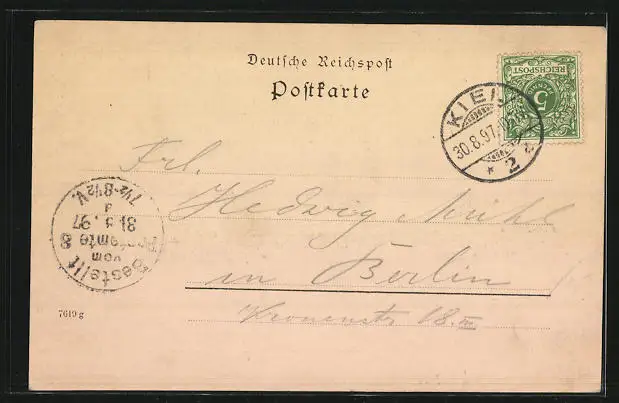 Deutsche Reichspost
Postkarte
REICHSPOST
5
PFENNIG
KIEL
30.8.97
* 2
Frl.
Hedwig Mühl
in Berlin
Kronenstr 18. III
Bestellt
vom
Postamte 8
31.8.97
7½-8½V.
7619 g